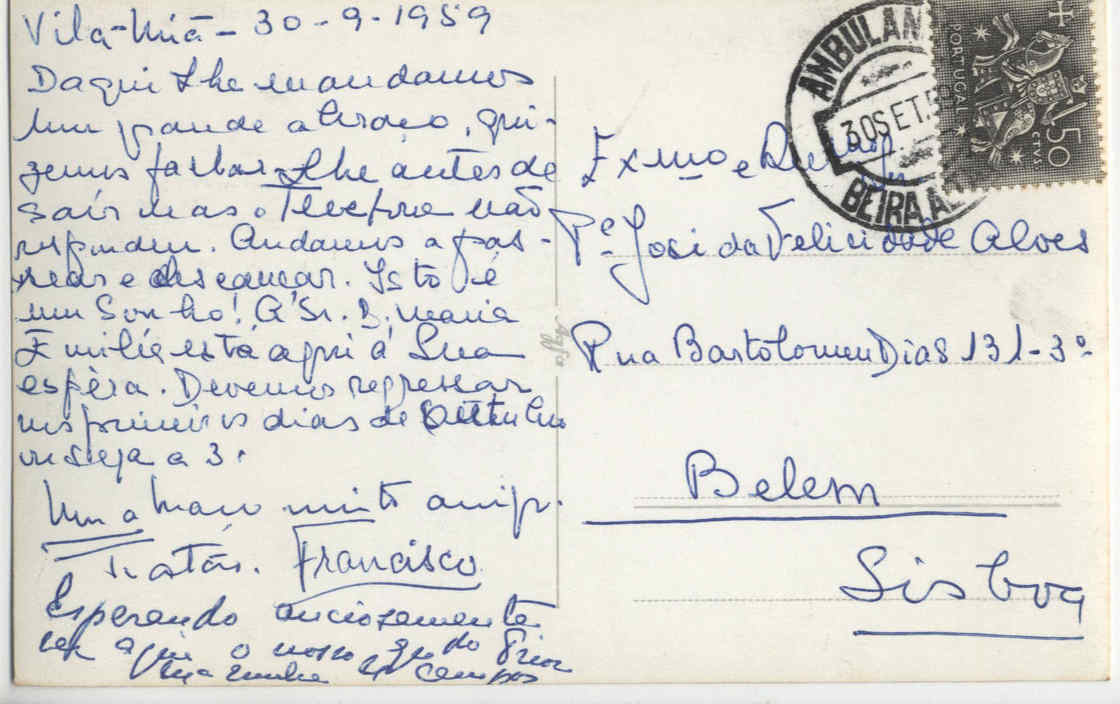 Vila-Niã - 30-9-1959
Daqui lhe mandamos
um grande abraço, qui-
zemos fallar-lhe antes de
sair mas o Telefone não
respondeu. Andamos a pas-
sear e descançar. Isto é
um Sonho! A Sr. D. Maria
Emilia está aqui á Sua
espéra. Devemos regressar
nos primeiros dias de Outubro
ou seja a 3.
Um abraço muito amigo
Francisco
Esperando anciosamente
ver aqui o nosso qdo Prior
Emilia Campos
Exmo e Rev. Sr.
Pe. José da Felicidade Alves
Rua Bartolomeu Dias 131-3º
Belem
Lisboa
Agfa
AMBULAN
30SET.5
BEIRA A
PORTUGAL
CTVS
50